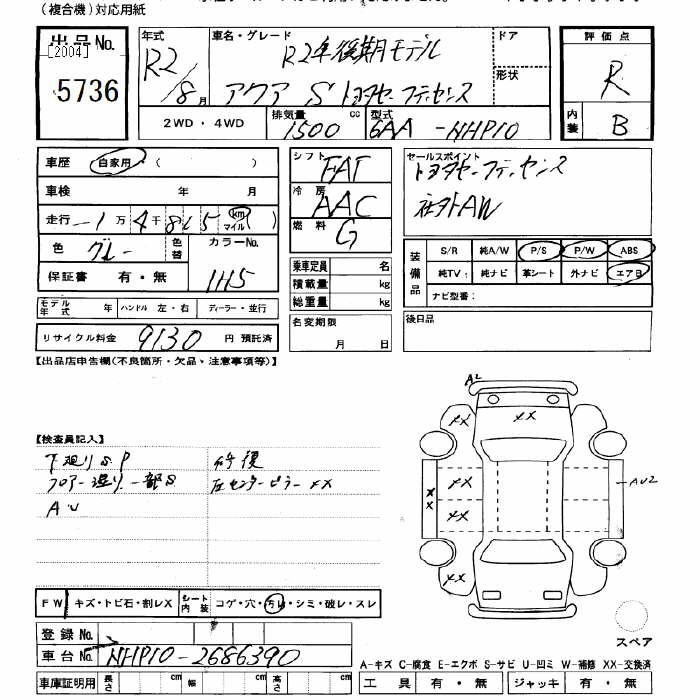 (複合機)対応用紙
出品No.
[2004]
5736
年式
R2/8月
車名・グレード
R2年後期モデル
アクア S トヨタセーフティセンス
ドア
形状
2WD・4WD
排気量 1500 cc
型式 6AA-NHP10
評価点
R
内装 B
車歴 自家用 ( )
車検 年 月
走行 1万4千815 km マイル ( )
色 グレー 色替
カラーNo. 1H5
保証書 有・無
モデル年式 年 ハンドル 左・右 ディーラー・並行
リサイクル料金 9130 円 預託済
シフト FAT
冷房 AAC
燃料 G
乗車定員 名
積載量 kg
総重量 kg
名変期限
月 日
セールスポイント
トヨタセーフティセンス
社外AW
装備品
S/R 純A/W P/S P/W ABS
純TV 純ナビ 革シート 外ナビ エアB
ナビ型番:
後日品
【出品店申告欄(不良箇所・欠品・注意事項等)】
【検査員記入】
下廻りSP
フロアー廻り一部S
AU
修復
左センターピラーXX
A2
XX
XX
XX
XX
XX
XX
AU2
スペア
FW キズ・トビ石・割レX シート内装 コゲ・穴・汚レ・シミ・破レ・スレ
登録No.
車台No. NHP10-2686390
車庫証明用 長さ cm 幅 cm 高さ cm
A-キズ C-腐食 E-エクボ S-サビ U-凹ミ W-補修 XX-交換済
工具 有・無 ジャッキ 有・無